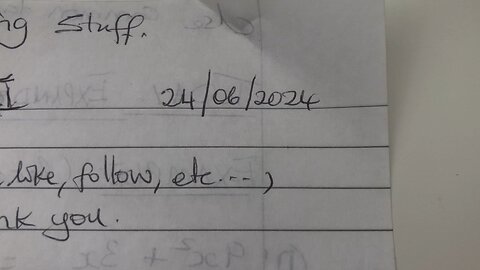 ng Stuff.
24/06/2024
like, follow, etc...)
nk you.